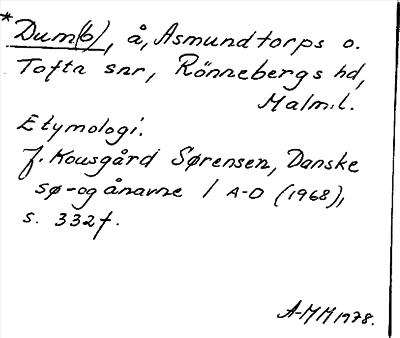 *Dum(b), å, Asmundtorps o.
Tofta snr, Rönnebergs hd,
Malm.l.
Etymologi.
J. Kousgård Sørensen, Danske
sø- og ånavne 1 A-D (1968),
s. 332f.
A-MM 1978.